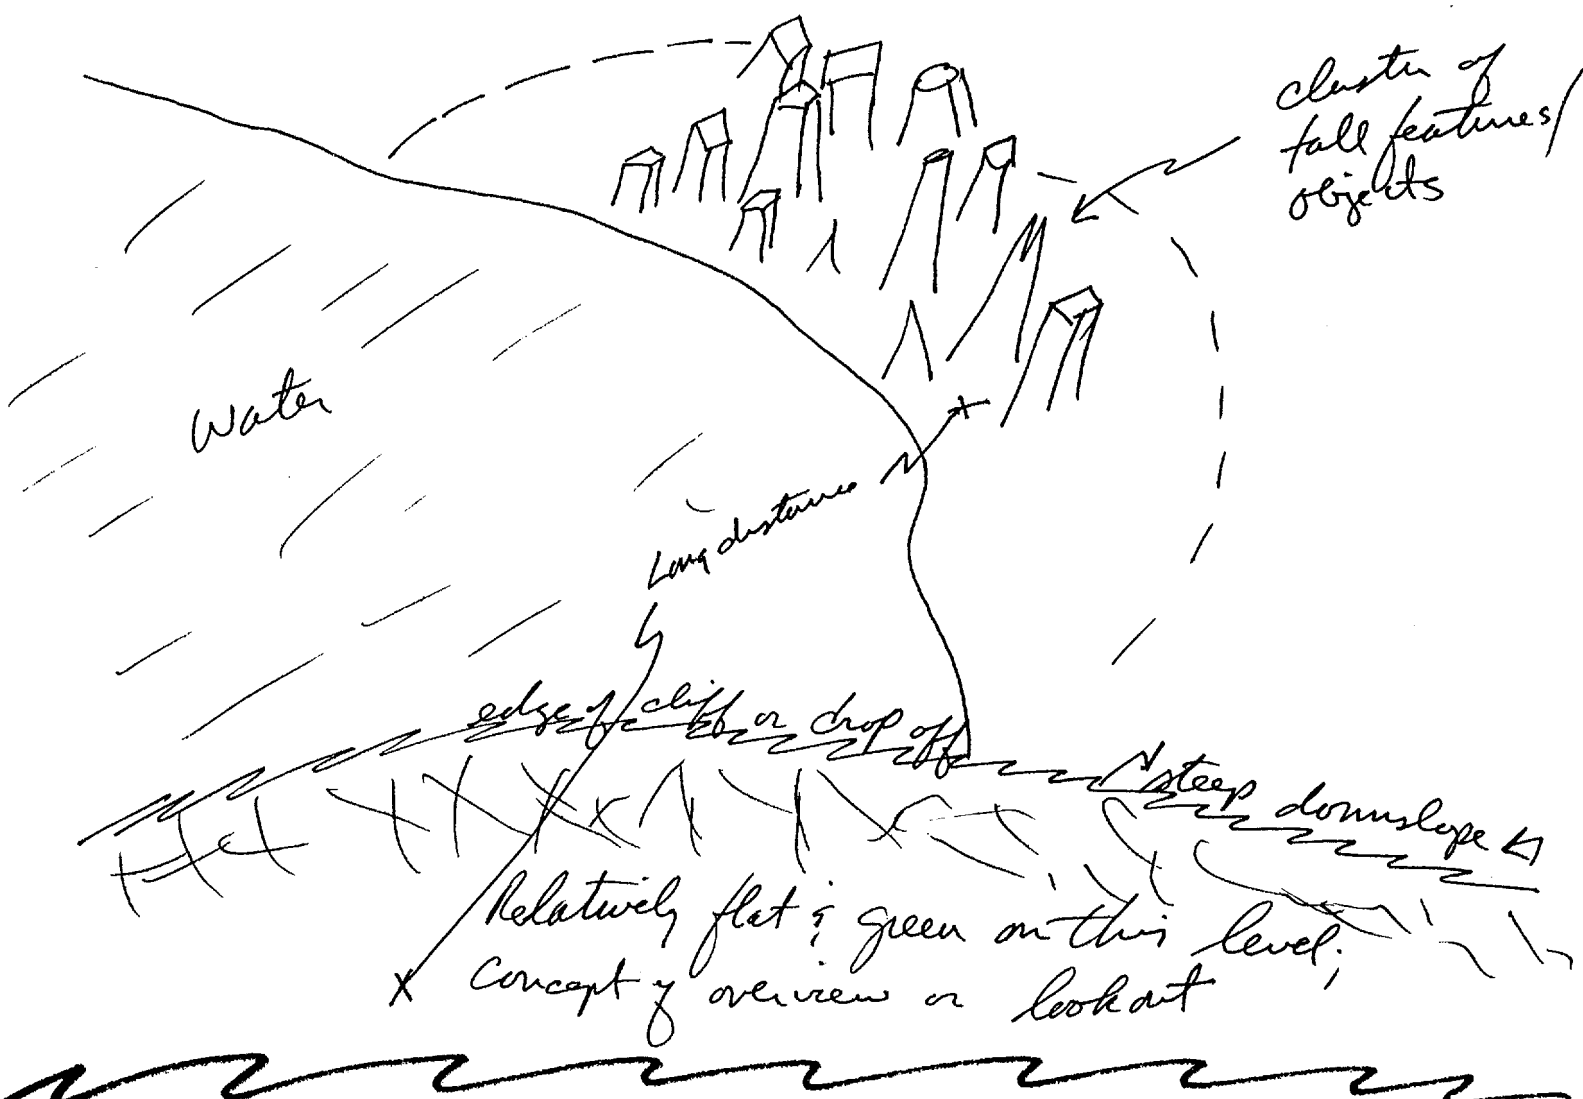 cluster of
tall features/
objects
Water
Long distance
edge of cliff or drop off
steep downslope
Relatively flat & green on this level;
concept of overview or lookout
X